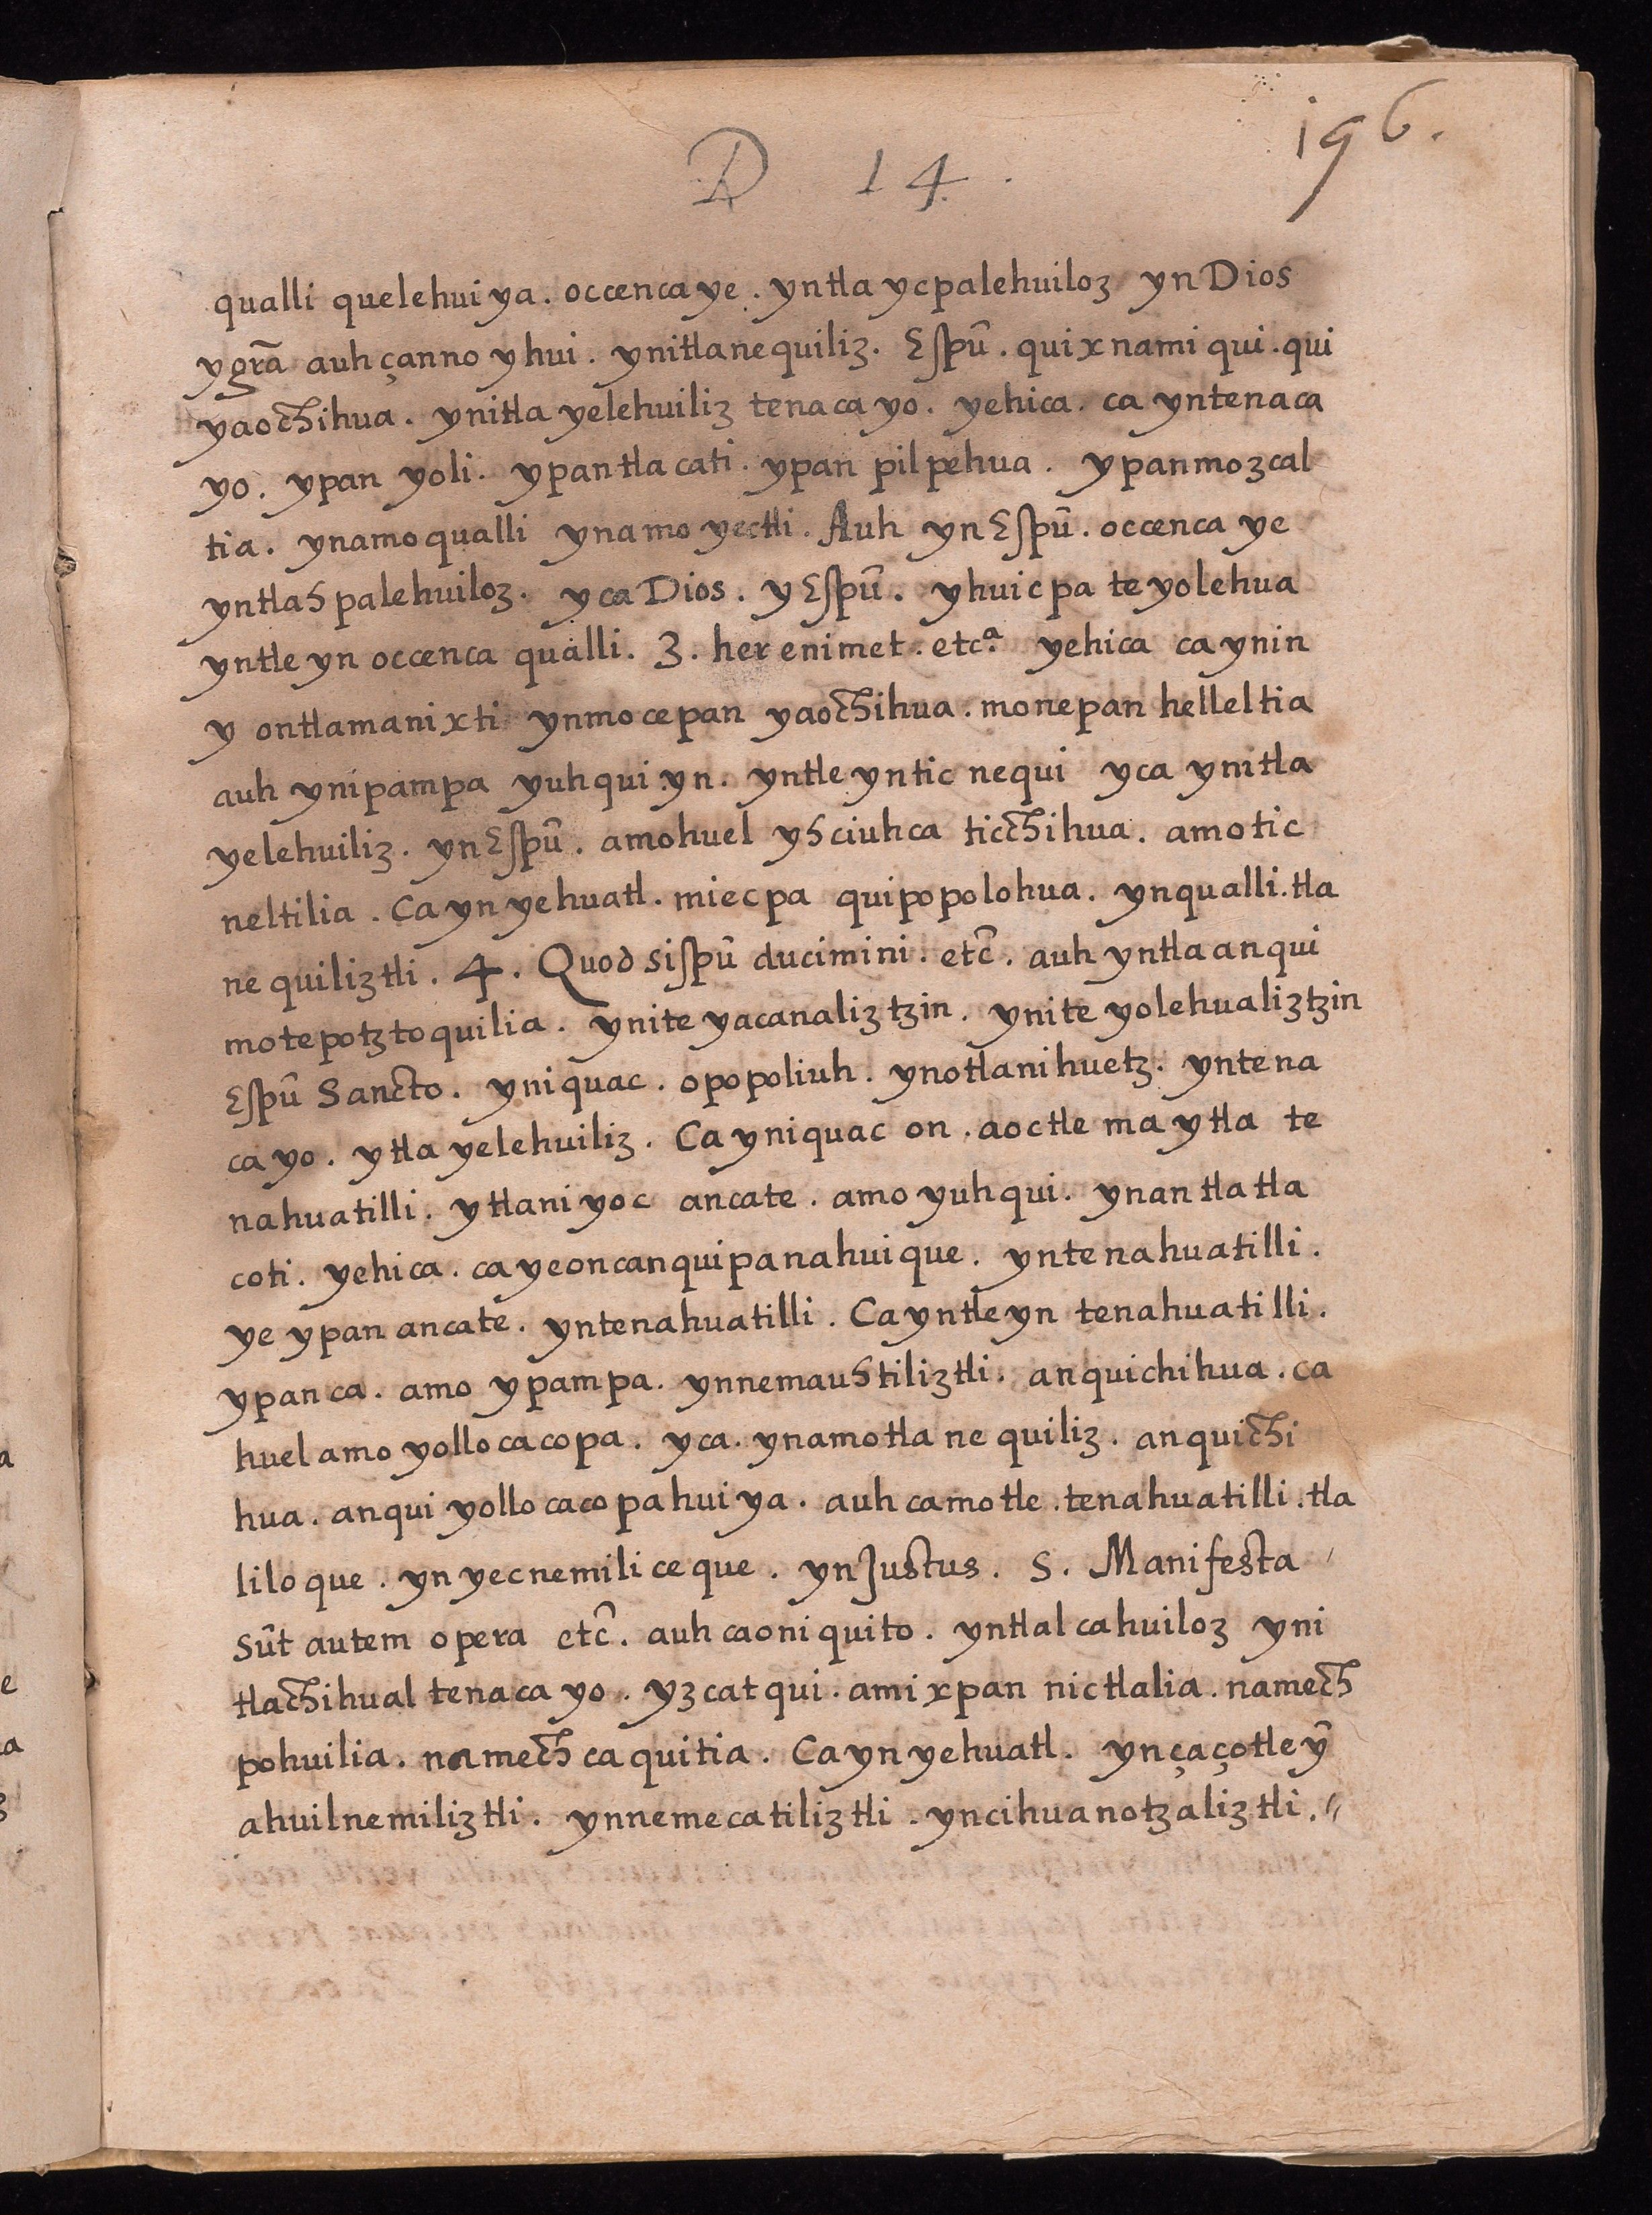 D 14.
196.
qualli quelehuiya. occenca ye. yntla yc palehuiloz yn Dios
y grã auh çanno yhui. ynitlanequiliz. Espũ. quixnamiqui. qui
yaochihua. ynitla yelehuiliz tenacayo. yehica. ca yntenaca
yo. ypan yoli. ypan tlacati. ypan pilpehua. ypanmozcal
tia. ynamo qualli ynamo yectli. Auh yn Espũ. occenca ye
yntlas palehuiloz. yca Dios. y Espũ. yhuicpa te yolehua
yntle yn occenca qualli. 3. her enimet. etcª. yehica ca ynin
y ontlamanixti ynmocepan yaochihua. monepan helleltia
auh ynipampa yuhqui yn. yntle yntic nequi yca ynitla
yelehuiliz. yn Espũ. amohuel ysciuhca ticchihua. amo tic
neltilia. Ca yn yehuatl. miecpa quipopolohua. ynqualli. tla
nequiliztli. 4. Quod si spũ ducimini. etc̃. auh yntla anqui
motepotztoquilia. ynite yacanaliztzin. ynite yolehualiztzin
Espũ Sancto. yniquac. opopoliuh. ynotlanihuetz. yntena
cayo. ytla yelehuiliz. Ca yniquac on. aoctle ma ytla te
nahuatilli. ytlaniyoc ancate. amo yuhqui. ynan tlatla
coti. yehica. ca yeoncanquipanahuique. yntenahuatilli.
ye ypan ancate. yntenahuatilli. Ca yntle yn tenahuatilli.
ypan ca. amo ypampa. ynnemaustiliztli. anquichihua. ca
huel amo yollocacopa. yca. ynamotlanequiliz. anquichi
hua. anqui yollocacopahuiya. auh camotle. tenahuatilli. tla
liloque. yn yecnemiliceque. yn Justus. S. Manifesta
sũt autem opera etc̃. auh caoni quito. yntlalcahuiloz yni
tlachihual tenacayo. yzcatqui. amixpan nictlalia. namech
pohuilia. namech caquitia. Ca yn yehuatl. ynçaçotleỹ
ahuilnemiliztli. ynnemecatiliztli. yncihuanotzaliztli.